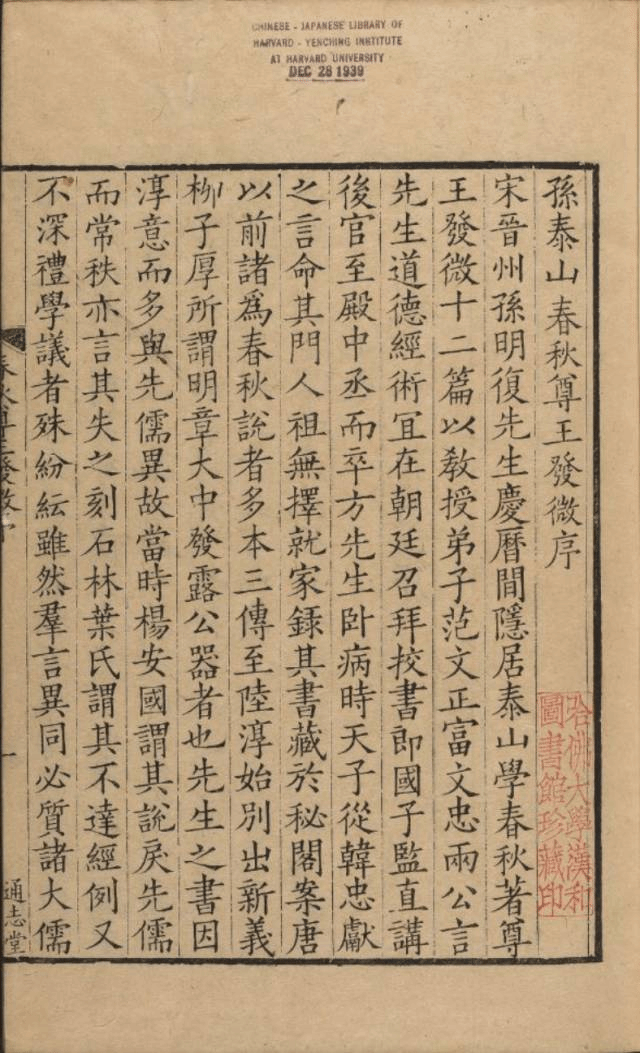 CHINESE - JAPANESE LIBRARY OF
HARVARD - YENCHING INSTITUTE
AT HARVARD UNIVERSITY
DEC 28 1939
孫泰山春秋尊王發微序
宋晉州孫明復先生慶曆間隱居泰山學春秋著尊
王發微十二篇以敎授弟子范文正富文忠兩公言
先生道德經術宜在朝廷召拜校書郎國子監直講
後官至殿中丞而卒方先生臥病時天子從韓忠獻
之言命其門人祖無擇就家錄其書藏於秘閣案唐
以前諸爲春秋說者多本三傳至陸淳始別出新義
柳子厚所謂明章大中發露公器者也先生之書因
淳意而多與先儒異故當時楊安國謂其說戾先儒
而常秩亦言其失之刻石林葉氏謂其不達經例又
不深禮學議者殊紛紜雖然羣言異同必質諸大儒
春秋尊王發微序
一
通志堂
哈佛大學漢和
圖書館珍藏印